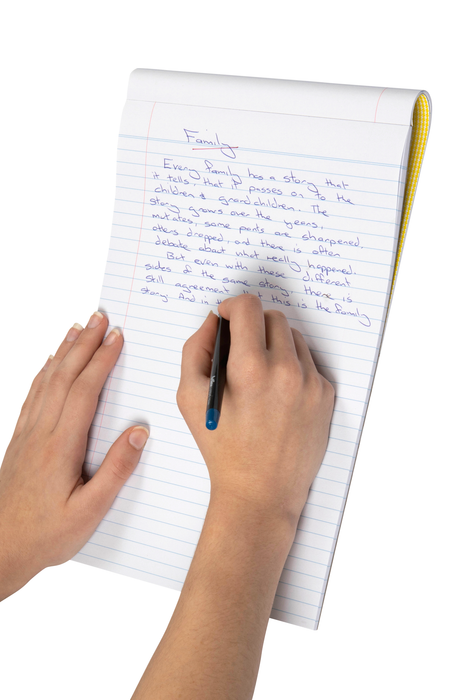 Family
Every family has a story that
it tells, that it passes on to the
children & grandchildren. The
story grows over the years,
mutates, some parts are sharpened,
others dropped, and there is often
debate about what really happened.
But even with these different
sides of the same story, there is
still agreement that this is the family
story. And in th